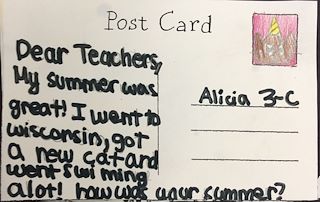 Post Card
Dear Teachers,
My summer was
great! I went to
wisconsin, got
a new cat and
went swimming
alot! how was your summer?
Alicia 3-C